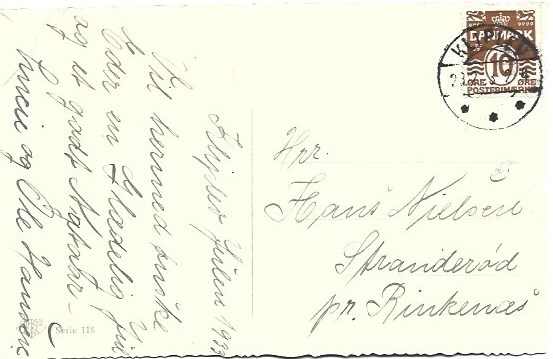 Kliplev Julen 1939
Vil herned ønske
Eder en Glædelig Jul
og et godt Nytaar
Lucie og Ole Hansen
Hrr.
Hans Nielsen
Stranderød
pr. Rinkenæs
DANMARK
10
ØRE ØRE
POSTFRIMÆRKE
Serie 118